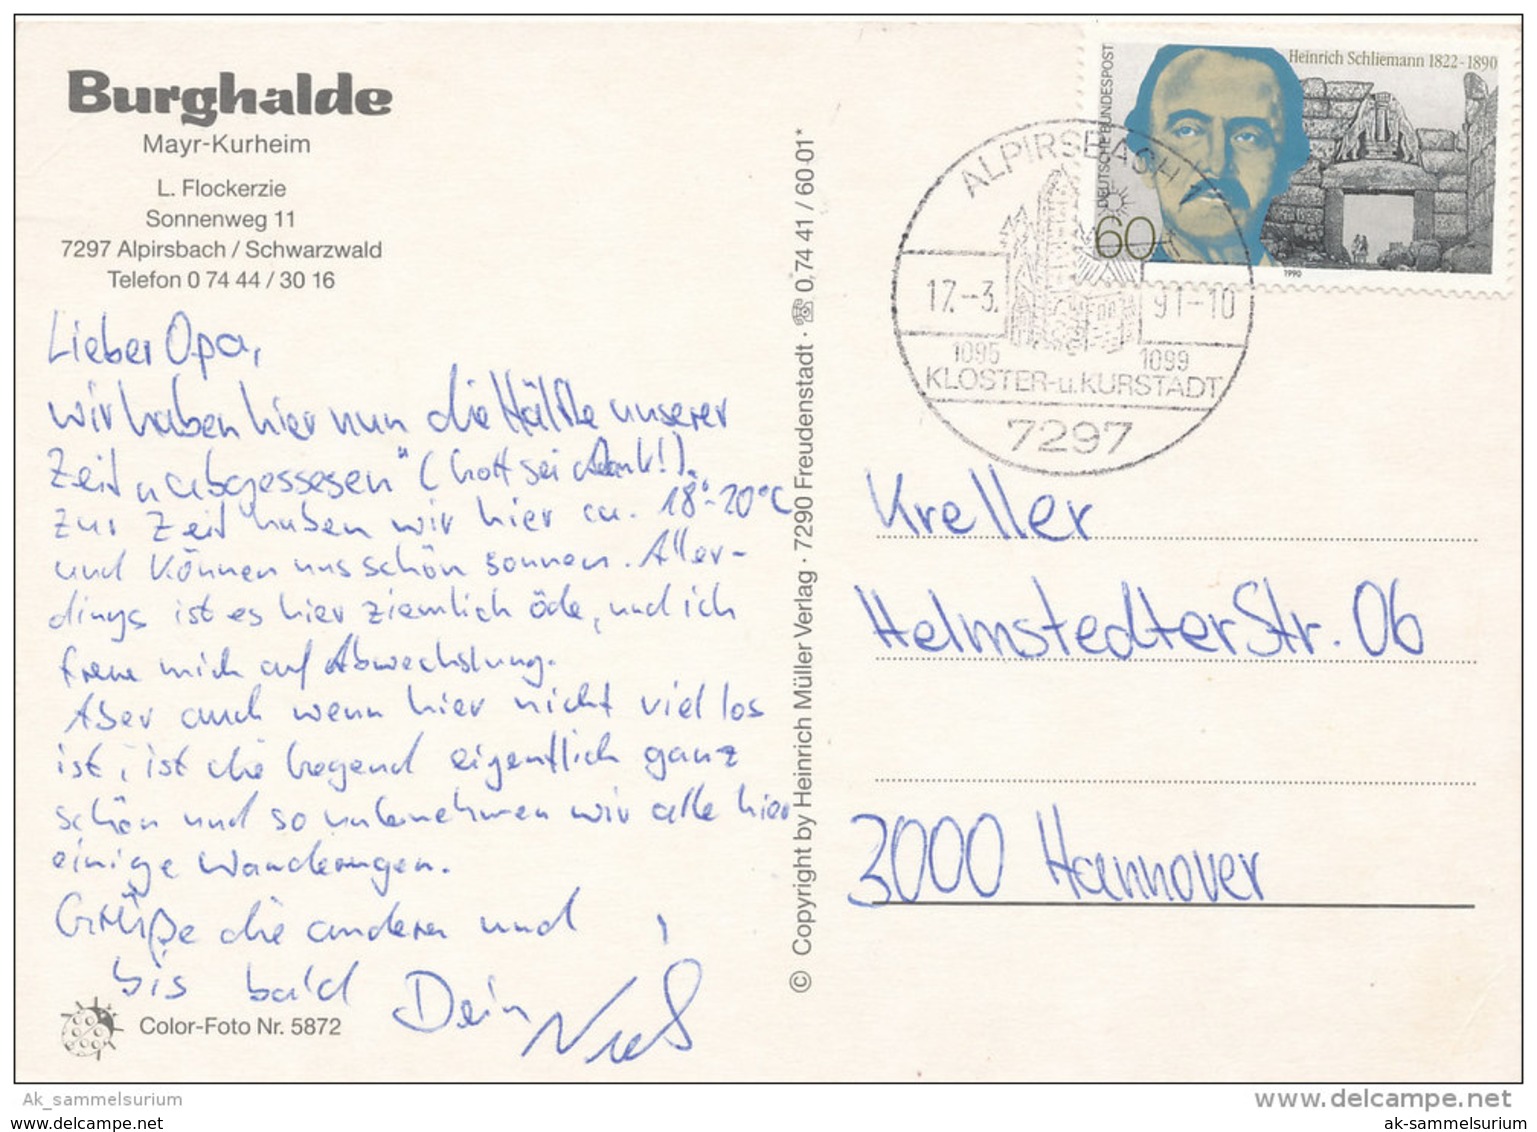 Burghalde
Mayr-Kurheim
L. Flockerzie
Sonnenweg 11
7297 Alpirsbach / Schwarzwald
Telefon 0 74 44 / 30 16
Lieber Opa,
wir haben hier nun die Hälfte unserer
Zeit „abgesessen“ (Gott sei Dank!).
Zur Zeit haben wir hier ca. 18°-20°C
und können uns schön sonnen. Aller-
dings ist es hier ziemlich öde, und ich
freue mich auf Abwechslung.
Aber auch wenn hier nicht viel los
ist, ist die Gegend eigentlich ganz
schön und so unternehmen wir alle hier
einige Wanderungen.
Grüße die anderen und
bis bald Dein
Color-Foto Nr. 5872
© Copyright by Heinrich Müller Verlag · 7290 Freudenstadt · ☏ 0,74 41 / 60-01*
DEUTSCHE BUNDESPOST
Heinrich Schliemann 1822-1890
60
1990
ALPIRSBACH
17.-3. 91-10
1095 1099
KLOSTER-u.KURSTADT
7297
Kreller
Helmstedter Str. 06
3000 Hannover
Ak_sammelsurium
www.delcampe.net
www.ak-sammelsurium.de
ak-sammelsurium